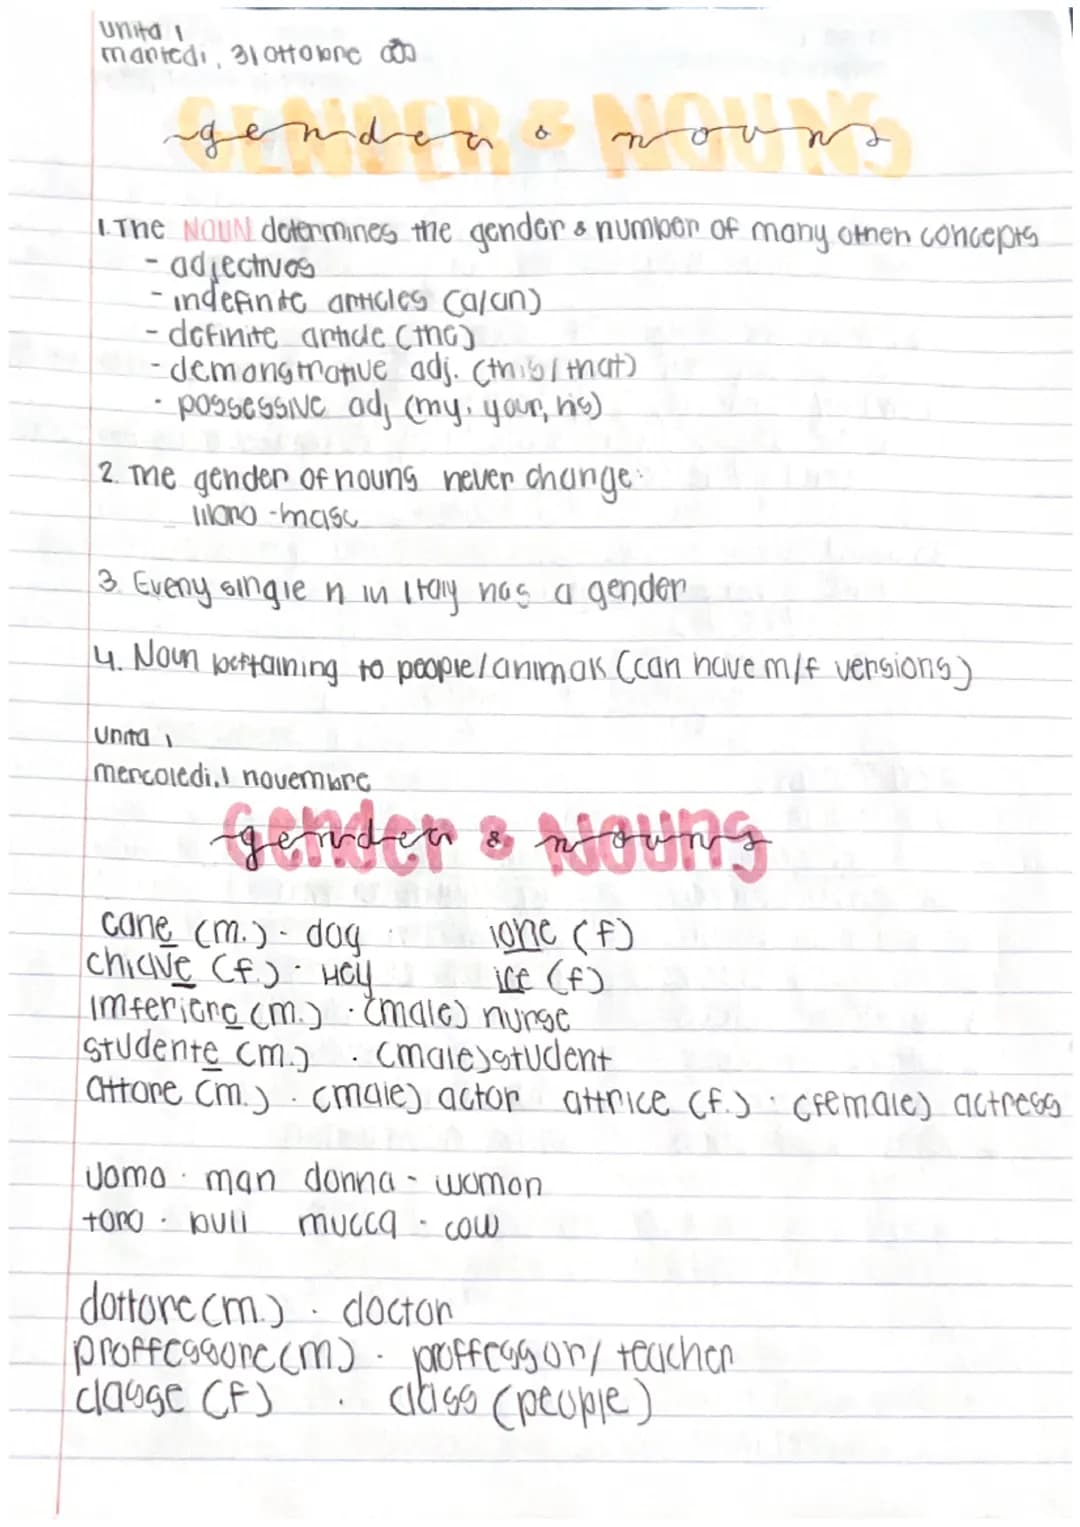 Unita 1
martedi, 31 ottobre
GENDER & NOUNS
gender & nouns
1. The NOUN determines the gender & number of many other concepts
- adjectives
- indefinite articles (a/an)
- definite article (the)
- demonstrative adj. (this/that)
- possessive adj (my, your, his)
2. The gender of nouns never change
-masc
3. Every single n in Italy has a gender
4. Noun to people/animals (can have m/f versions)
Unita 1
mercoledi, 1 novembre
Gender & Nouns
gender & nouns
cane (m.) - dog ione (f)
(f.) - ice (f)
imferiere (m.) - (male) nurse
studente (m.) - (male) student
attore (m.) - (male) actor attrice (f.) - (female) actress
uomo - man donna - woman
toro - bull mucca - cow
dottore (m.) - doctor
proffessore (m) - proffessor/ teacher
classe (f) - class (people)